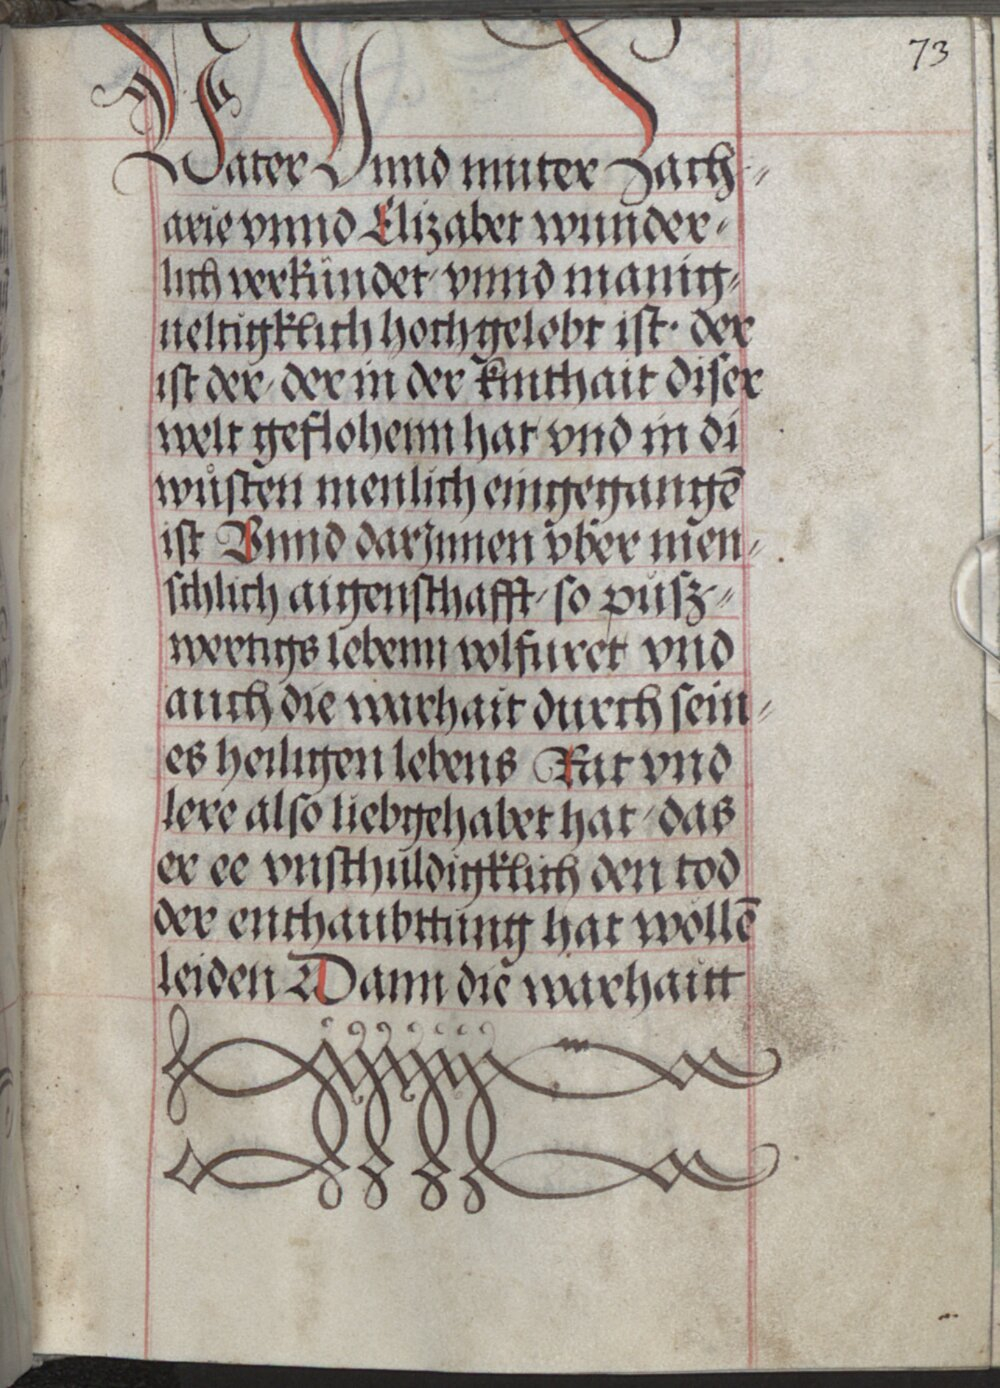 73
Vater Vnnd muter Zach⸗
arie vnnd Elizabet wunder⸗
lich verkündet vnnd manig⸗
ueltigklich hochgelobt ist· der
ist der, der in der kinthait diser
welt geflohenn hat vnd in di
wůsten menlich eingegangē
ist Vnnd darJnnen v̈ber men⸗
schlich aigenschafft, so půsz⸗
wertigs lebenn volfuret vnd
auch die warhait durch sein⸗
es heiligen lebens Rat vnd
lere also liebgehabet hat, das
er ee vnschuldigklich den tod
der enthaubttung hat wöllē
leiden Dann die warhaitt